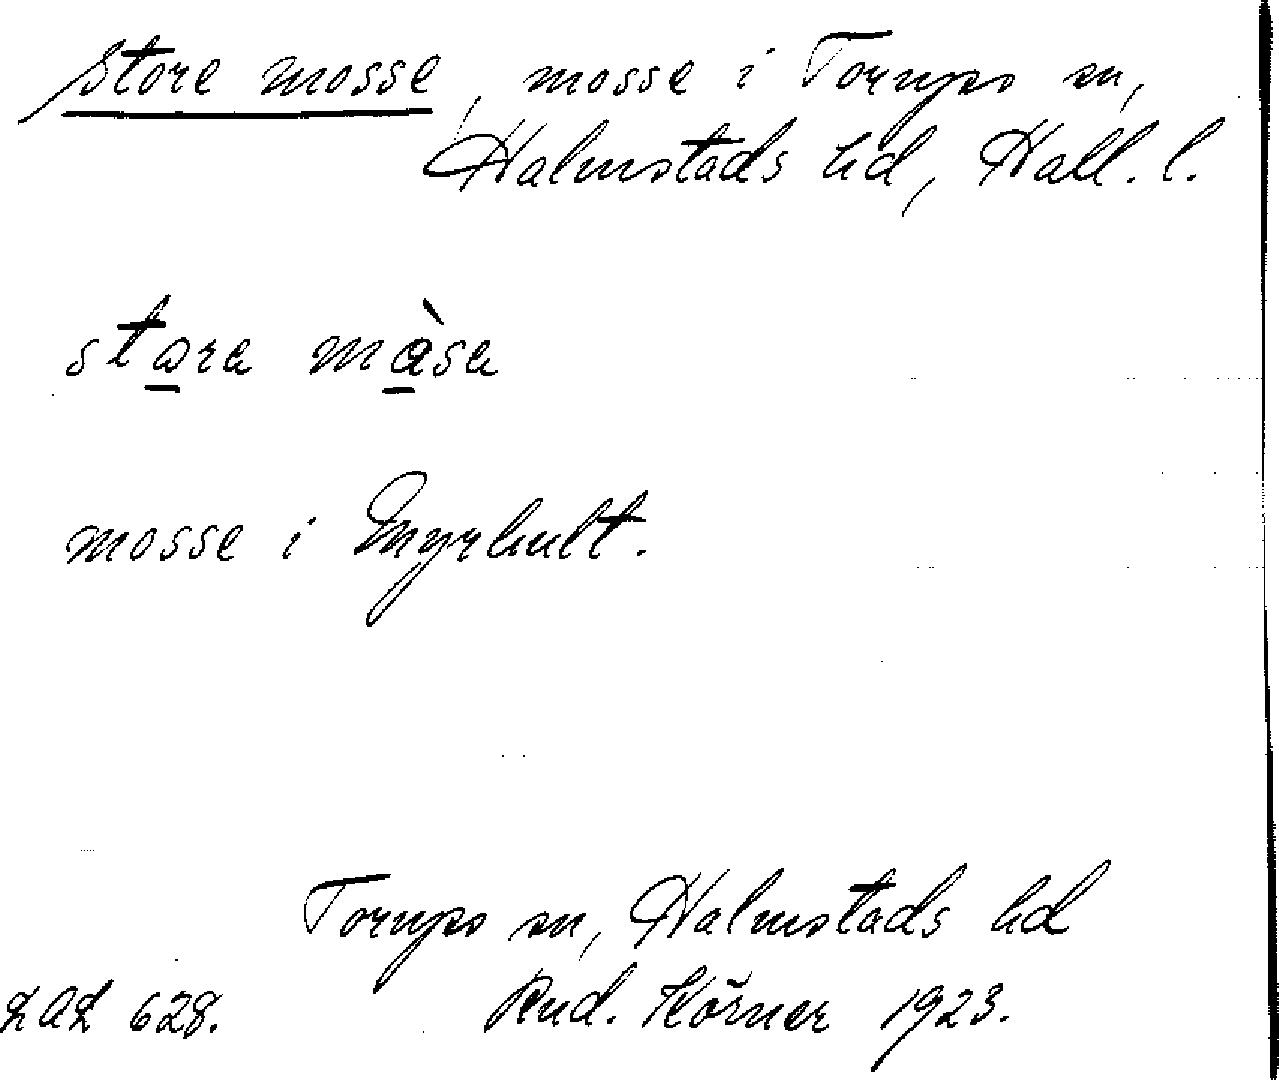 Store mosse, mosse i Torups sn,
Halmstads hd, Hall. l.
stora màsa
mosse i Smyrhult.
Torups sn, Halmstads hd
LAL 628. Rud. Körner 1923.